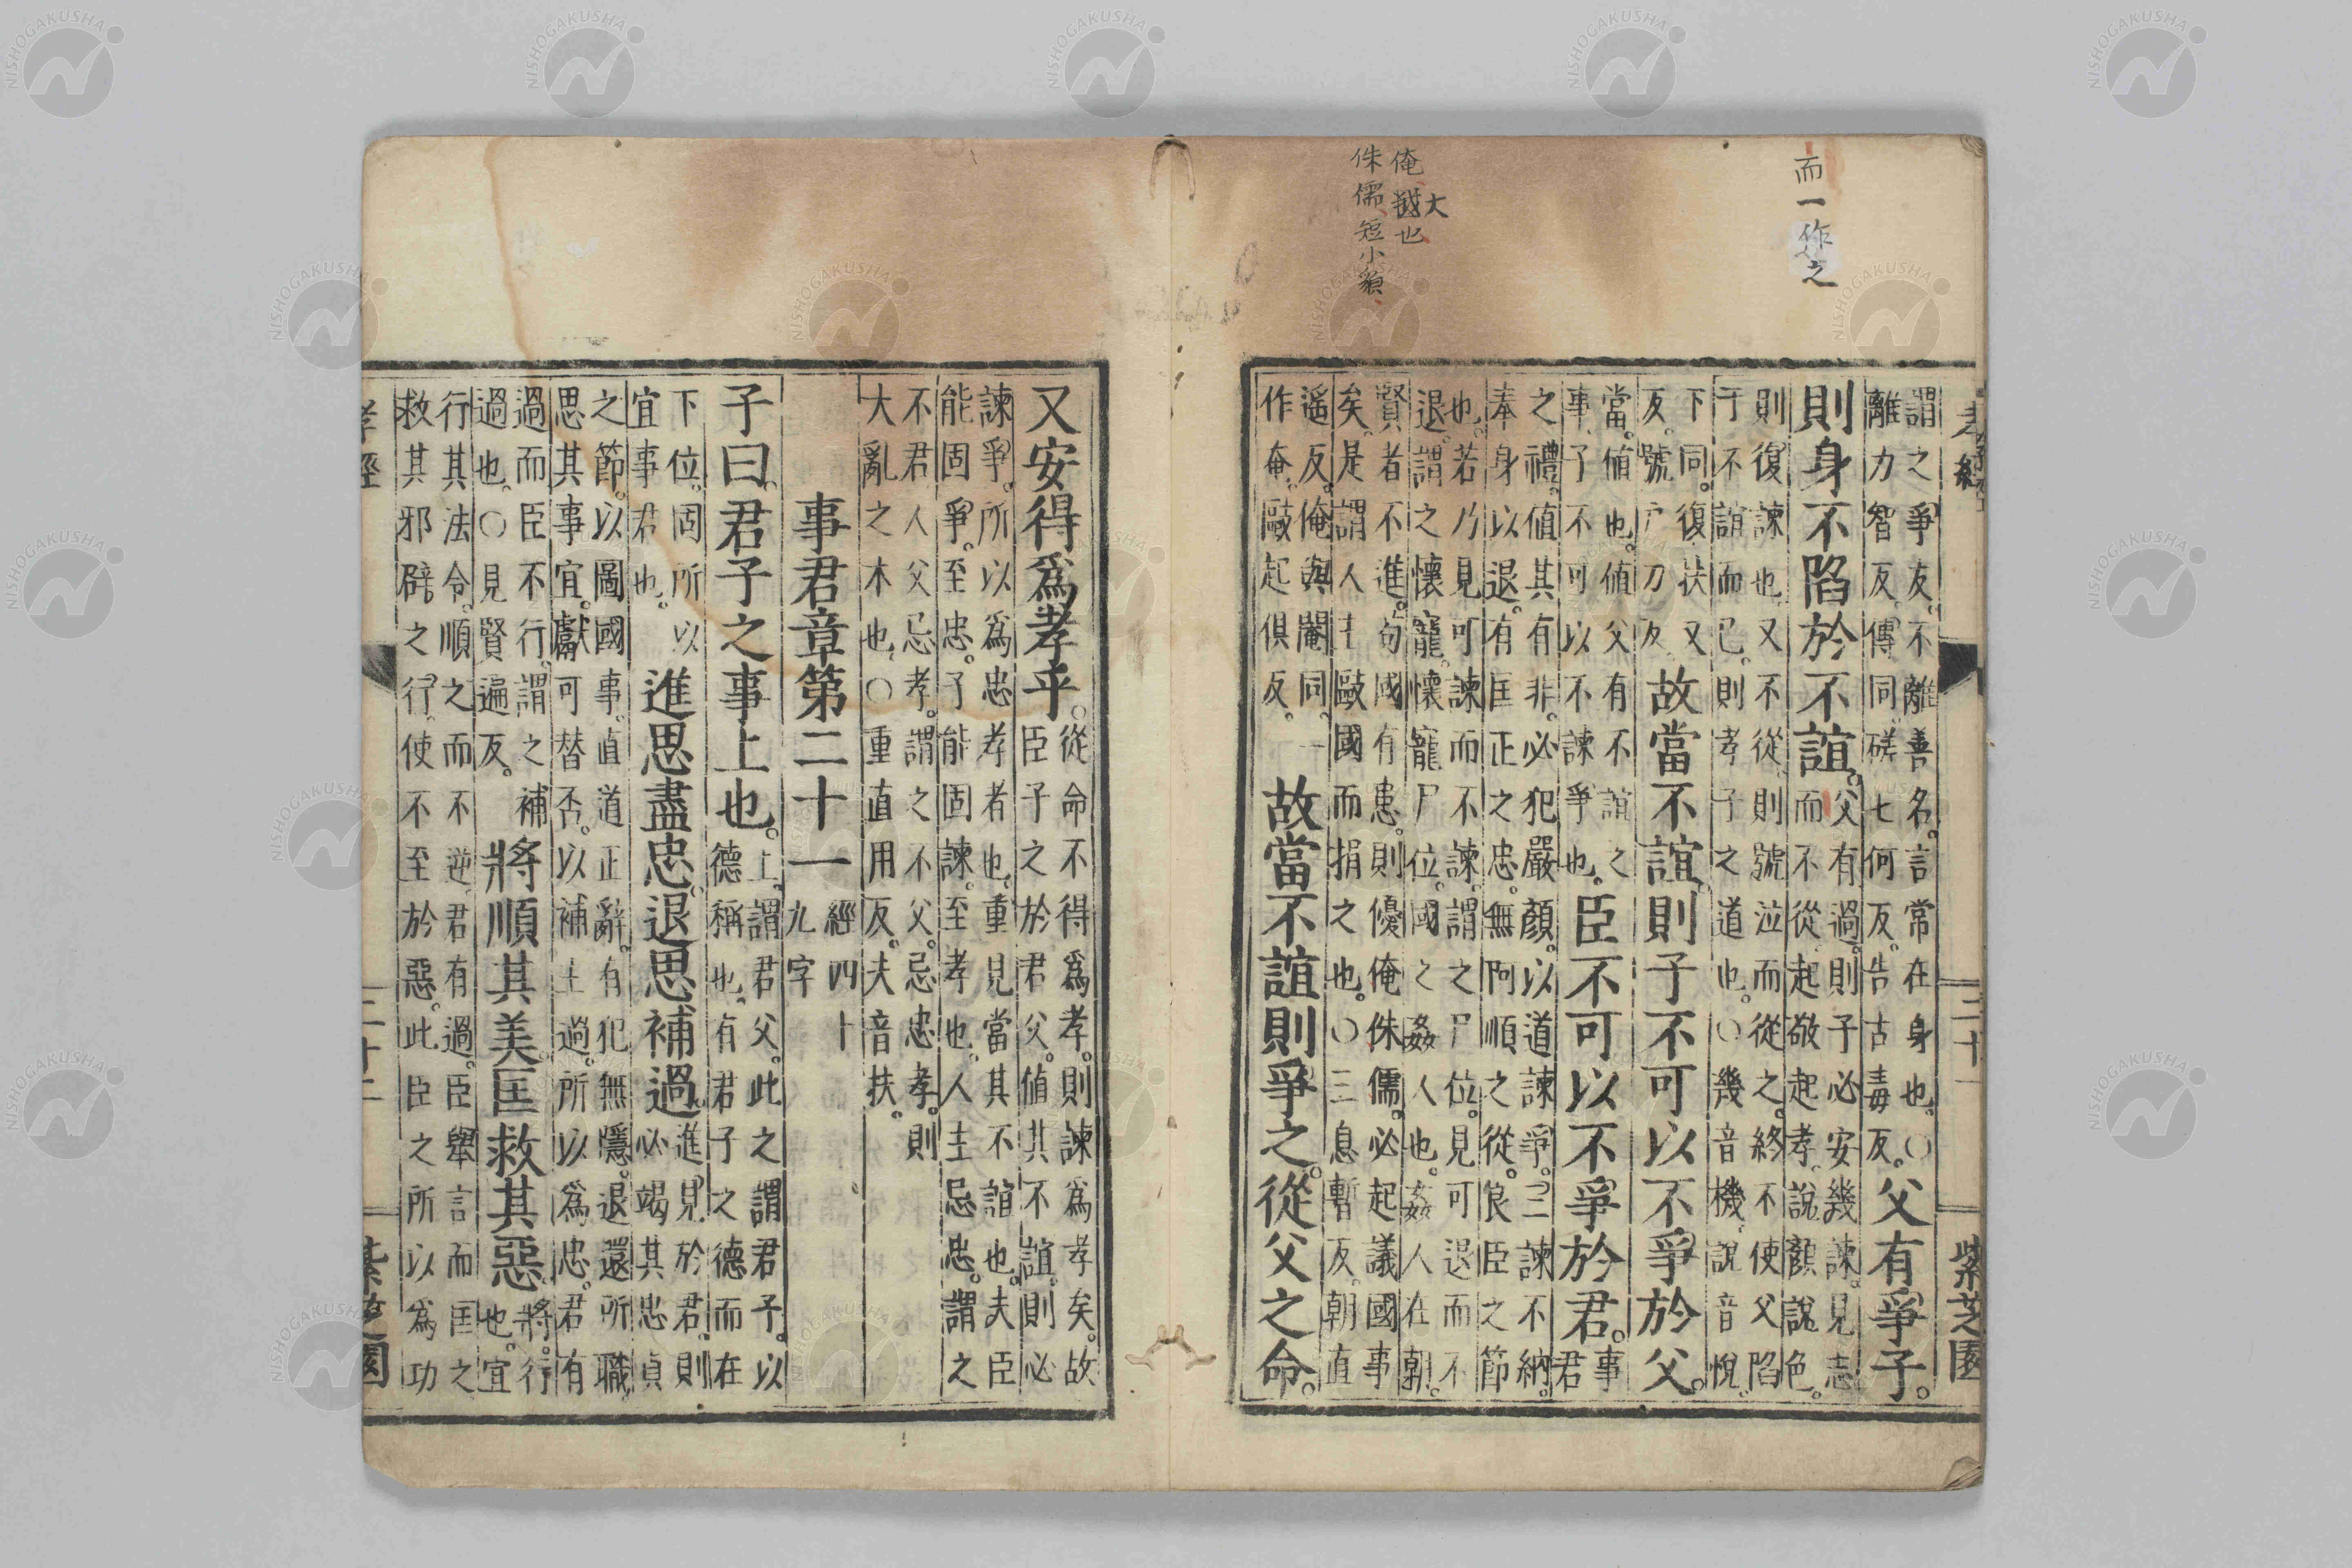 而一作之
俺、大也
侏儒、短小貌、
孝經
二十一
紫芝園
謂之爭友。不離善名。言常在身也。○
離力智反。傳同。磋七何反。告古毒反。
父有爭子。
則身不陷於不誼。
父有過。則子必安幾諫。見志
而不從。起敬起孝。說顏說色。
則復諫也。又不從。則號泣而從之。終不使父陷
于不誼而已。則孝子之道也。○幾音機。說音悅。
下同。復扶又
反。號戶刀反
故當不誼。則子不可以不爭於父。
當。值也。值父有不誼之
事。子不可以不諫爭也。
臣不可以不爭於君。
事
君
之禮。値其有非。必犯嚴顏。以道諫爭。三諫不納。
奉身以退。有匡正之忠。無阿順之從。良臣之節
也。若乃見可諫而不諫。謂之尸位。見可退而不
退。謂之懷寵。懷寵尸位。國之姦人也。姦人在朝。
賢者不進。苟國有患。則優俺侏儒。必起議國事
矣。是謂人主敺國而捐之也。○三息暫反。朝直
遙反。俺與閹同。一
作奄。敺起俱反。
故當不誼則爭之。從父之命。
又安得爲孝乎。
從命不得爲孝。則諫爲孝矣。故
臣子之於君父。値其不誼。則必
諫爭。所以爲忠孝者也。重見當其不誼也。夫臣
能固爭。至忠。子能固諫。至孝也。人主忌忠。謂之
不君。人父忌孝。謂之不父。忌忠孝。則
大亂之本也。○重直用反。夫音扶。
事君章第二十一
經四十
九字
子曰。君子之事上也。
上。謂君父。此之謂君子。以
德稱也。有君子之德而在
下位。固所以
宜事君也。
進思盡忠。退思補過。
進見於君。則
必竭其忠貞
之節。以圖國事。直道正辭。有犯無隱。退還所職。
思其事宜。獻可替否。以補主過。所以爲忠。君有
過而臣不行。謂之補
過也。○見賢遍反。
將順其美。匡救其惡。
將。行
也。宜
行其法令。順之而不逆。君有過。臣舉言而匡之
救其邪辟之行。使不至於惡。此臣之所以爲功
孝經
二十二
紫芝園